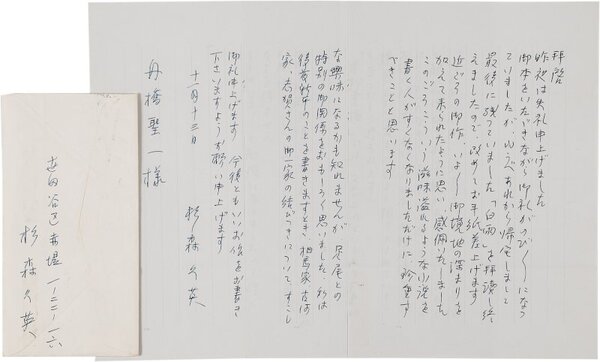 拝啓
昨夜は失礼申上げました
御本をいただきながら御礼がのび〱になっ
ていましたが ゆうべあれから帰宅しまして
最後に残っていました「白雨」を拝読し終
えましたので、改めてお手紙差上げます
近ごろの御作 いよ〱御境地の深まりを
加えて来られたように思い 感佩いたしました
このごろこういう滋味溢れるような小説を
書く人がすくなくなりましただけに 珍重す
べきことと思います
な興味になるかも知れませんが 足尾との
特別の御関係をおもしろく思いました 私は
後藤新平のことを書きますとき、相馬家
家、志賀さんの御一家の結びつきについてすこし
御礼申上げます 今後ともいいお作をお書き
下さいますようお願い申上げます
十一月十三日
杉森久英
舟橋聖一様
世田谷区赤堤一ノ二二ノ一六
杉森久英